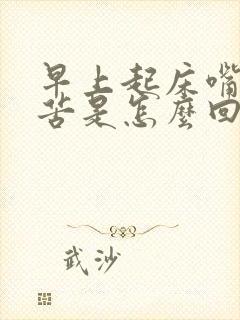 早上起床嘴
苦是怎麼回
武沙